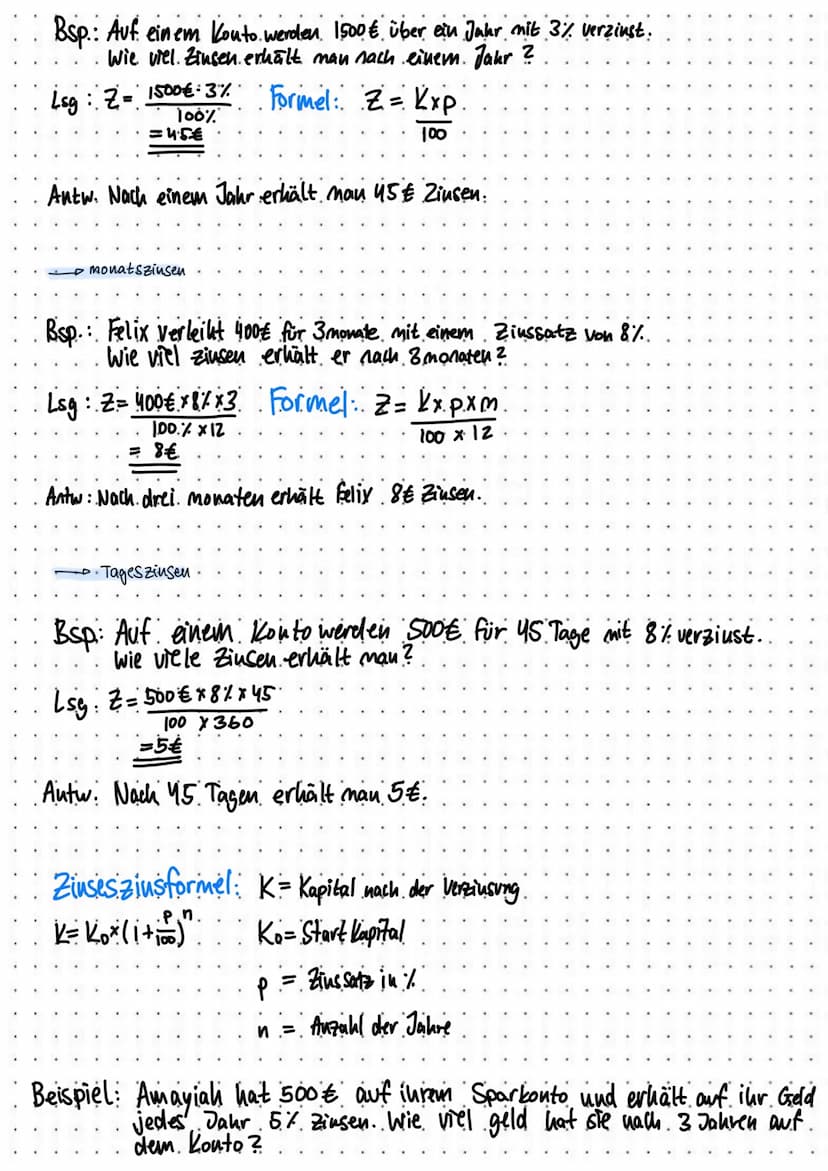 Bsp.: Auf einem Konto werden 1500€ über ein Jahr mit 3% verzinst.
Wie viel Zinsen erhält man nach einem Jahr?
Lsg: Z= 1500€·3% Formel: Z = Kxp
100% 100
=45€
Antw. Nach einem Jahr erhält man 45€ Zinsen.
→ monatszinsen
Bsp.: Felix verleiht 400€ für 3monate mit einem Zinssatz von 8%.
Wie viel zinsen erhält er nach 3monaten?
Lsg: Z= 400€x8%x3 Formel: Z= Kxpxm
100% x12 100 x 12
= 8€
Antw: Nach drei monaten erhält Felix 8€ Zinsen.
→ Tageszinsen
Bsp: Auf einem Konto werden 500€ für 45 Tage mit 8% verzinst.
Wie viele Zinsen erhält man?
Lsg: Z= 500€x8%x45
100 x360
=5€
Antw. Nach 45 Tagen erhält man 5€.
Zinseszinsformel: K= Kapital nach der Verzinsung
K= K₀x(1+p/100)ⁿ K₀= Start Kapital
p = Zinssatz in %
n = Anzahl der Jahre
Beispiel: Amayiah hat 500€ auf ihrem Sparkonto und erhält auf ihr Geld
jedes Jahr 5% Zinsen. Wie viel geld hat sie nach 3 Jahren auf
dem Konto?